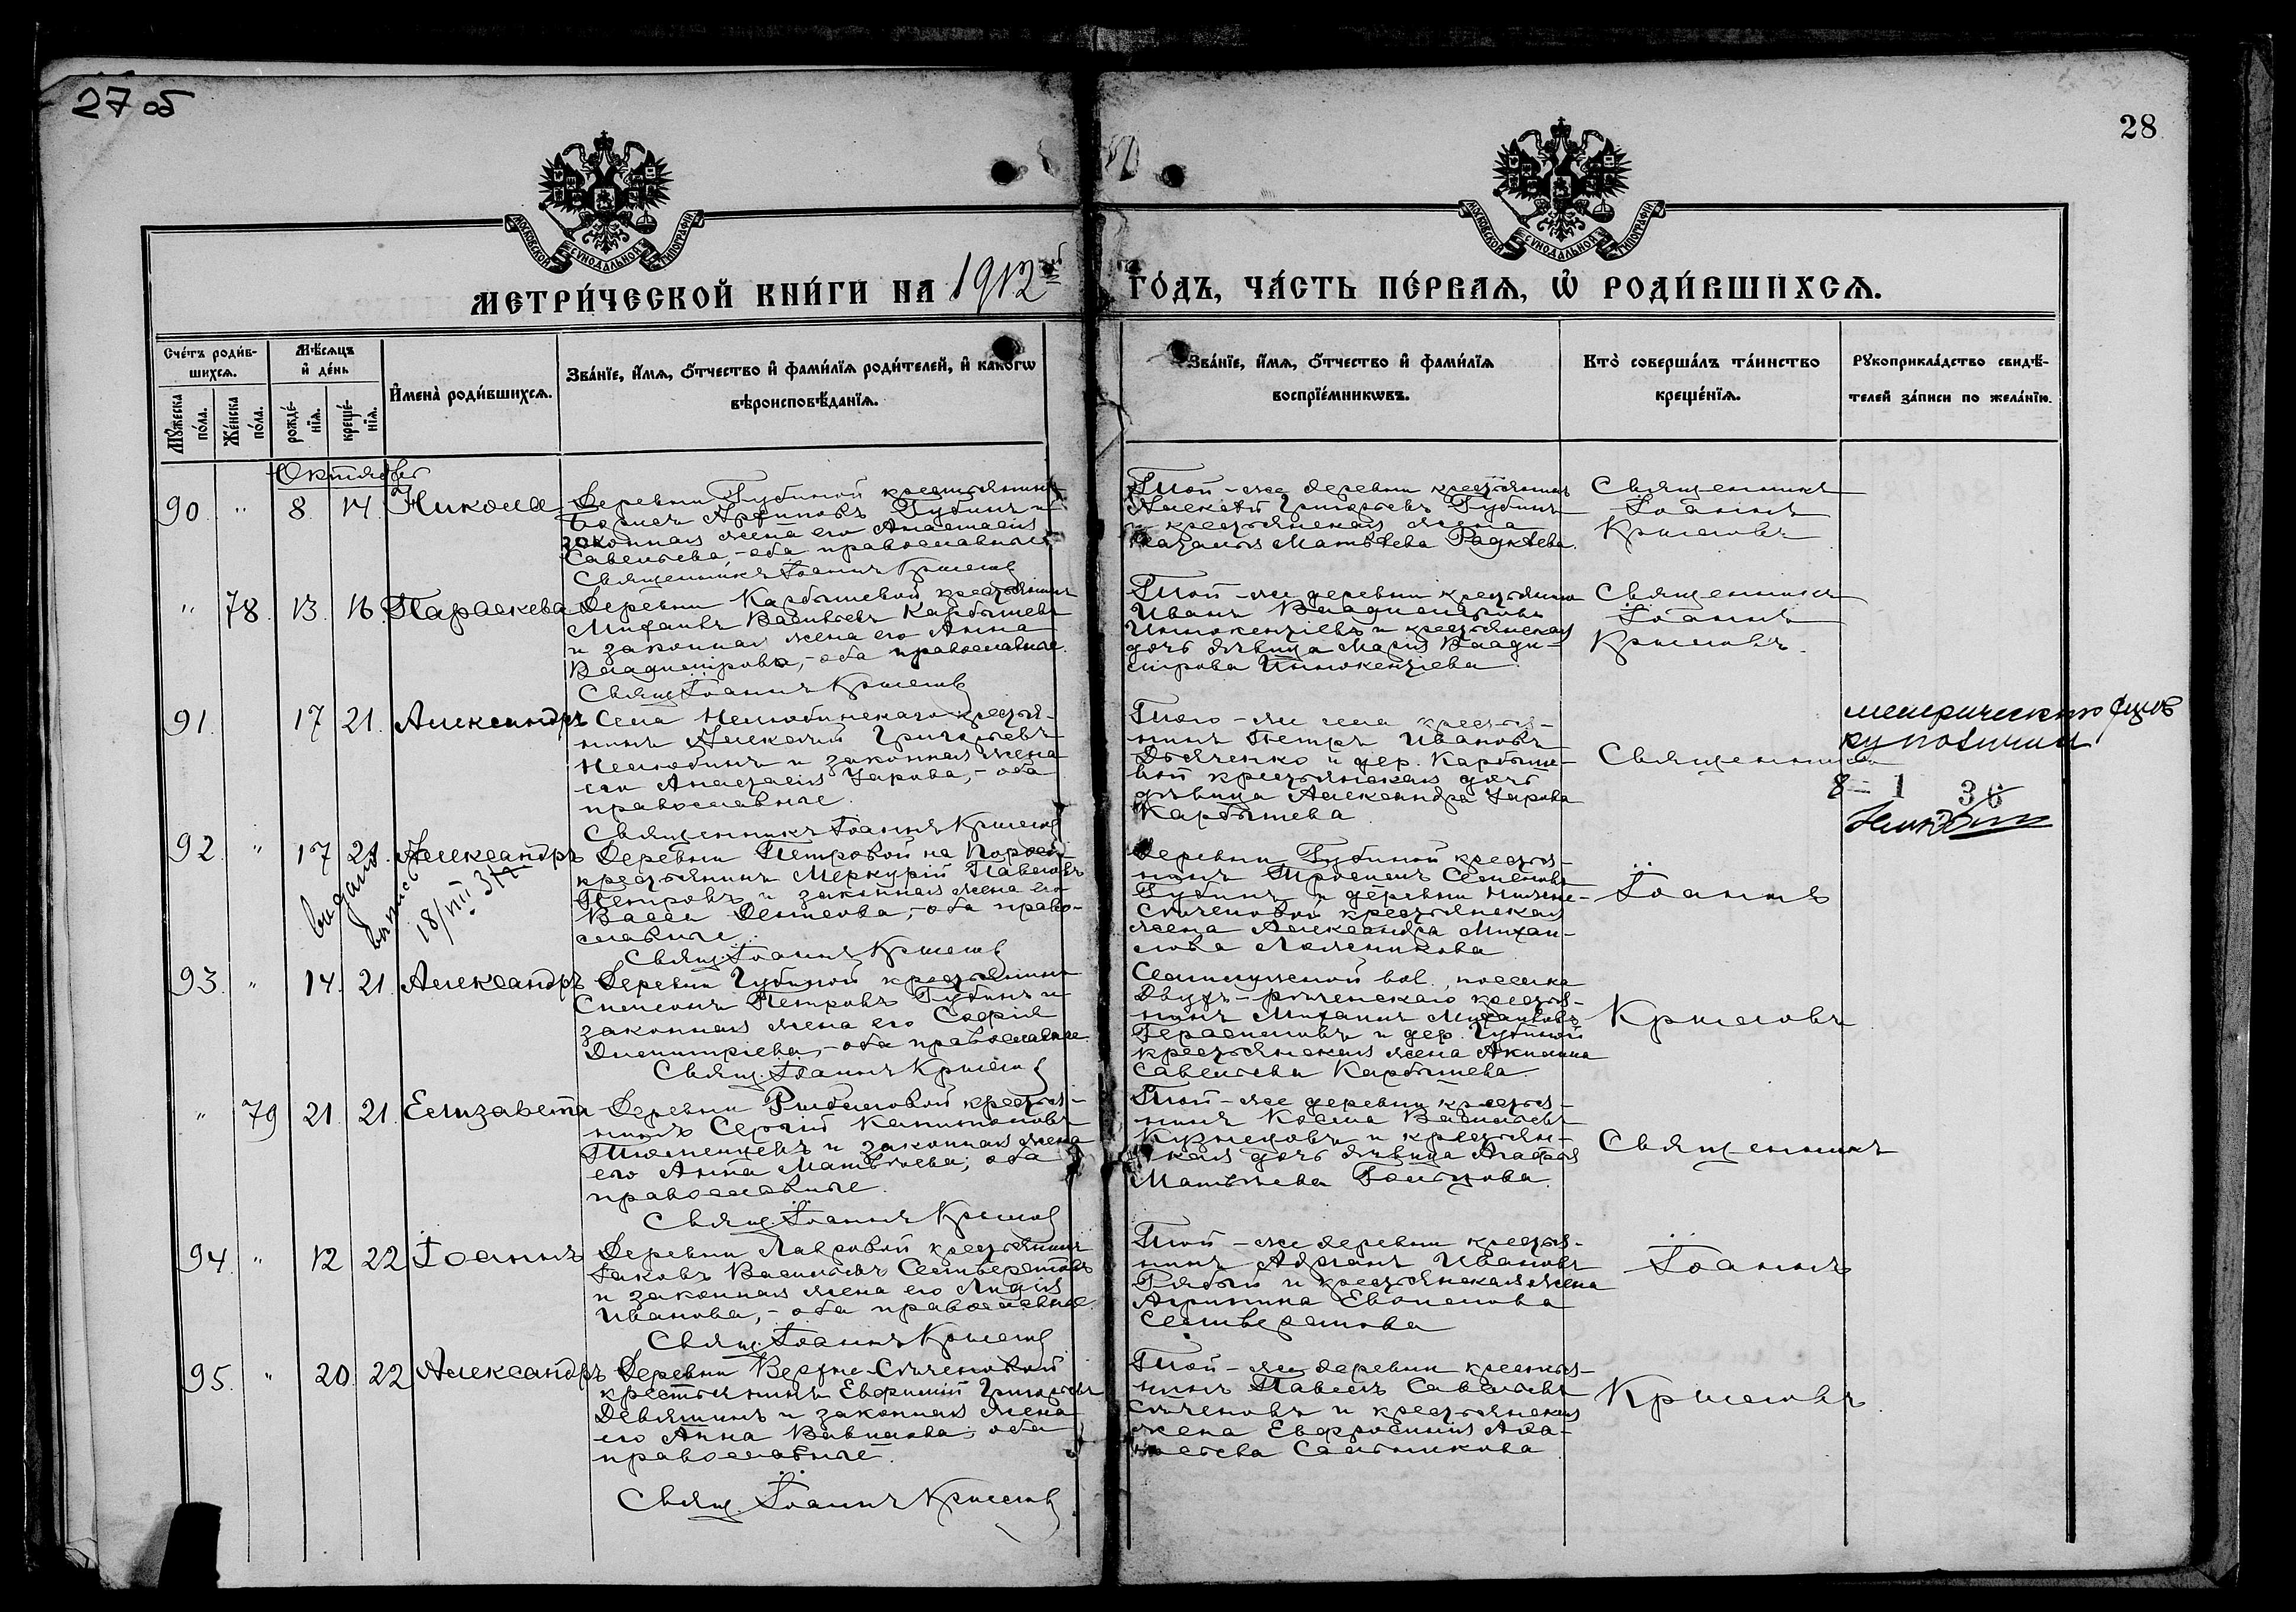 27 об
28
МОСКОВСКОЙ СУНОДАЛЬНОЙ ТИПОГРАФІИ
МОСКОВСКОЙ СУНОДАЛЬНОЙ ТИПОГРАФІИ
МЕТРИ́ЧЕСКОЙ КНИ́ГИ НА 1912 ГО́ДЪ, ЧА́СТЬ ПЕ́РВАЯ, Ѡ РОДИ́ВШИХСЯ.
Сче́тъ роди́в-
шихся.
Мѣ́сяцъ
и де́нь
Му́жеска по́ла.
Же́нска по́ла.
рожде́-
нїя.
креще́-
нїя.
Имена̀ роди́вшихся.
Зва́нїе, и́мя, о́тчество и фами́лїя роди́телей, и како́гѡ
вѣроисповѣ́данїя.
Зва́нїе, и́мя, о́тчество и фами́лїя
воспрїе́мникѡвъ.
Кто̀ соверша́лъ та́инство
креще́нїя.
Рукоприкла́дство свидѣ́-
телей за́писи по жела́нїю.
Октябрь
90. " 8. 14. Николай
Деревни Губиной крестьянинъ
Борисъ Архиповъ Губинъ и
законная жена его Анастасія
Савельева, - оба православные
Священникъ Іоаннъ Крылов
Той - же деревни крестьянинъ
Алексѣй Григорьевъ Губинъ
и крестьянская жена
Матвѣева
Священникъ
Іоаннъ
Крыловъ
" 78. 13. 16. Параскева
Деревни Карбышевой крестьянинъ
Михаилъ Васильевъ Карбышевъ
и законная жена его Анна
Владимірова, - оба православные.
Свящ. Іоаннъ Крылов
Той - же деревни крестьянинъ
Иванъ Владиміровъ
Иннокентіевъ и крестьянская
дочь дѣвица Марія Влади-
мірова Иннокентіева
Священникъ
Іоаннъ
Крыловъ.
91. 17 21. Александръ
Села Нелюбинскаго крестья-
нинъ Алексѣй Григорьевъ
Нелюбинъ и законная жена
его Анастасія Уарова, - оба
православные.
Священникъ Іоаннъ Крылов
Того - же села крестья-
нинъ Петръ Ивановъ
Дьяченко и дер. Карбыше-
вой крестьянская дочь
дѣвица Александра Уарова
Карбышева
Священникъ
метрическую
получил
8 - 1 36
92. " 17 21. Александръ
выдана
выпись
18/VIII 31 г
Деревни Петровой на
крестьянинъ Меркурій Павловъ
Петровъ и законная жена его
Васса, - оба право-
славные.
Свящ. Іоаннъ Крылов
Деревни Губиной крестья-
нинъ Семеновъ
Губинъ и деревни Нижне-
Сѣченовой крестьянская
жена Александра Михаи-
лова
Іоаннъ
93. " 14. 21. Александръ
Деревни Губиной крестьянинъ
Симеонъ Петровъ Губинъ и
законная жена его Софія
Димитріева, - оба православные.
Свящ. Іоаннъ Крылов
Семилужной вол., поселка
Двухъ - рѣченскаго крестья-
нинъ Михаилъ Михайловъ
Герасимовъ и дер. Губиной
крестьянская жена Акилина
Савельева Карбышева.
Крыловъ
" 79 21. 21. Елизавета
Деревни Рыбаловой крестья-
нинъ Сергій Капитоновъ
Тюменцевъ и законная жена
его Анна Матвѣева, оба
православные.
Свящ. Іоаннъ Крылов
Той - же деревни крестья-
нинъ Косма Васильевъ
Кузнецовъ и крестьян-
ская дочь дѣвица Агафія
Матвѣева Гольцова.
Священникъ
94. " 12 22 Іоаннъ
Деревни Лавровой крестьянинъ
Іаковъ Васильевъ Селиверстовъ
и законная жена его Лидія
Иванова, - оба православные.
Свящ. Іоаннъ Крылов
Той - же деревни крестья-
нинъ Адріанъ Ивановъ
Рябый и крестьянская жена
Агриппина
Селиверстова
Іоаннъ
95. " 20. 22 Александръ
Деревни Верхне-Сѣченовой
крестьянинъ Евфимій Григорьевъ
Девяшинъ и законная жена
его Анна Вавилова, оба
православные.
Свящ. Іоаннъ Крылов
Той - же деревни крестья-
нинъ Павелъ Савельевъ
Сѣченовъ и крестьянская
жена Евфросинія
Сальникова
Крыловъ.